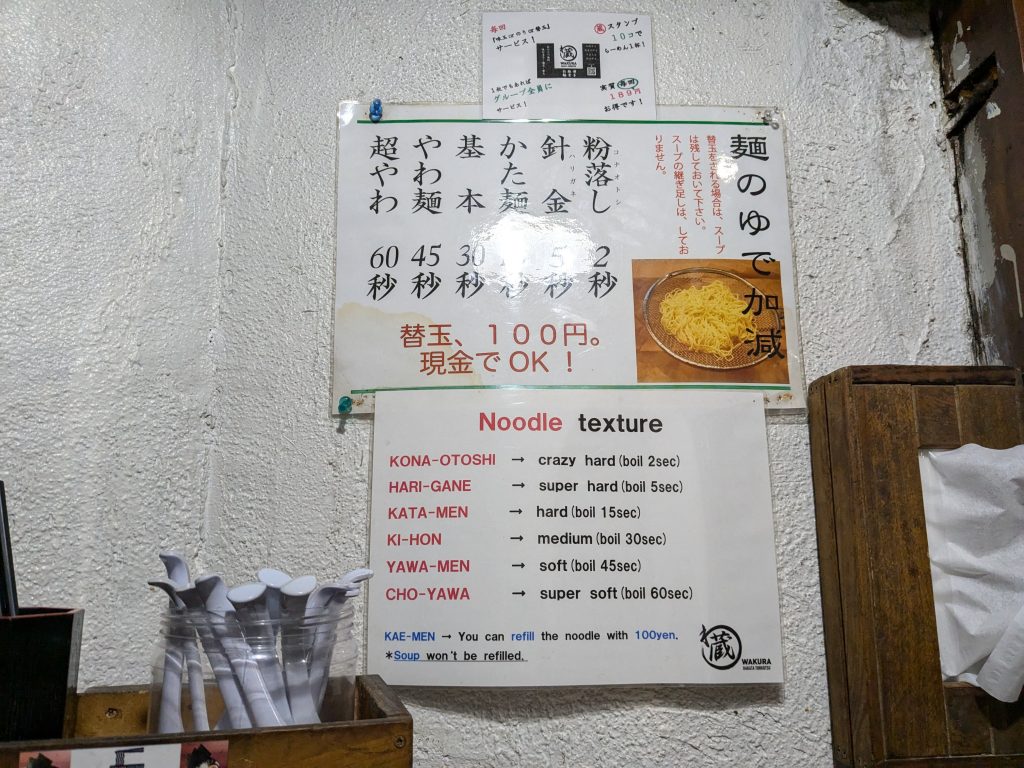 毎回
サービス！
蔵
WAKURA
1枚でもあれば
グループ全員に
サービス！
スタンプ
10コで
らーめん1杯！
実質毎回
189円
お得です！
麺のゆで加減
替玉をされる場合は、スープ
は残しておいて下さい。
スープの継ぎ足しは、してお
りません。
粉落し 2秒
コナオトシ
針金 5秒
ハリガネ
かた麺 秒
基本 30秒
やわ麺 45秒
超やわ 60秒
替玉、１００円。
現金でOK！
Noodle texture
KONA-OTOSHI → crazy hard(boil 2sec)
HARI-GANE → super hard(boil 5sec)
KATA-MEN → hard(boil 15sec)
KI-HON → medium(boil 30sec)
YAWA-MEN → soft(boil 45sec)
CHO-YAWA → super soft(boil 60sec)
KAE-MEN → You can refill the noodle with 100yen.
*Soup won't be refilled.
わ蔵
WAKURA
HAKATA TONKOTSU